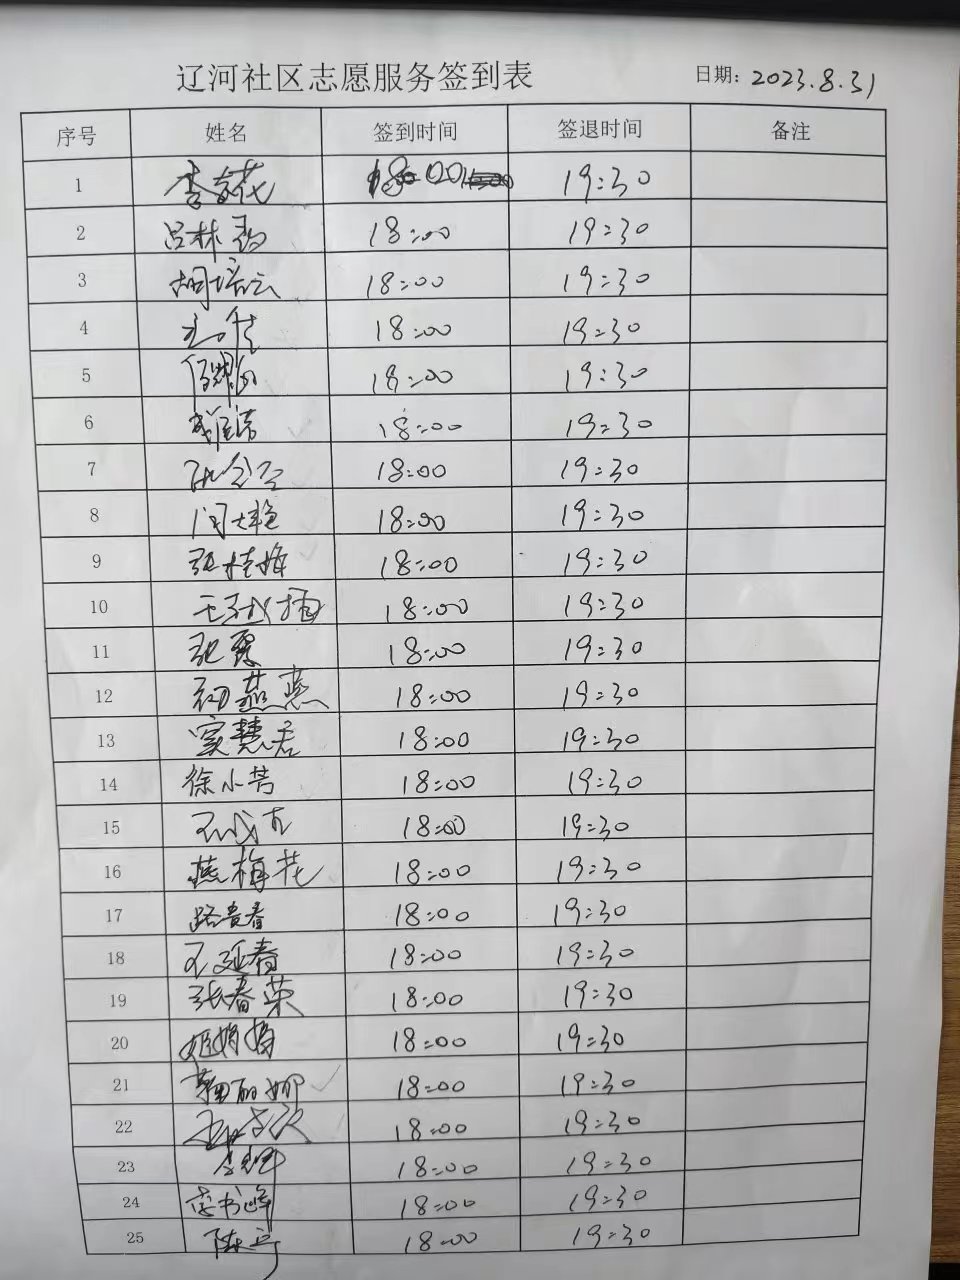 辽河社区志愿服务签到表 日期: 2023.8.31
序号 姓名 签到时间 签退时间 备注
1 18:00 19:30
2 吕林 18:00 19:30
3 胡培云 18:00 19:30
4 18:00 19:30
5 18:00 19:30
6 18:00 19:30
7 18:00 19:30
8 闫艳 18:00 19:30
9 张桂梅 18:00 19:30
10 18:00 19:30
11 张霞 18:00 19:30
12 燕 18:00 19:30
13 窦慧君 18:00 19:30
14 徐小芳 18:00 19:30
15 18:00 19:30
16 燕梅花 18:00 19:30
17 路贵春 18:00 19:30
18 王延春 18:00 19:30
19 张春荣 18:00 19:30
20 姬娟娟 18:00 19:30
21 鞠丽娜 18:00 19:30
22 18:00 19:30
23 18:00 19:30
24 李书峰 18:00 19:30
25 陈 18:00 19:30